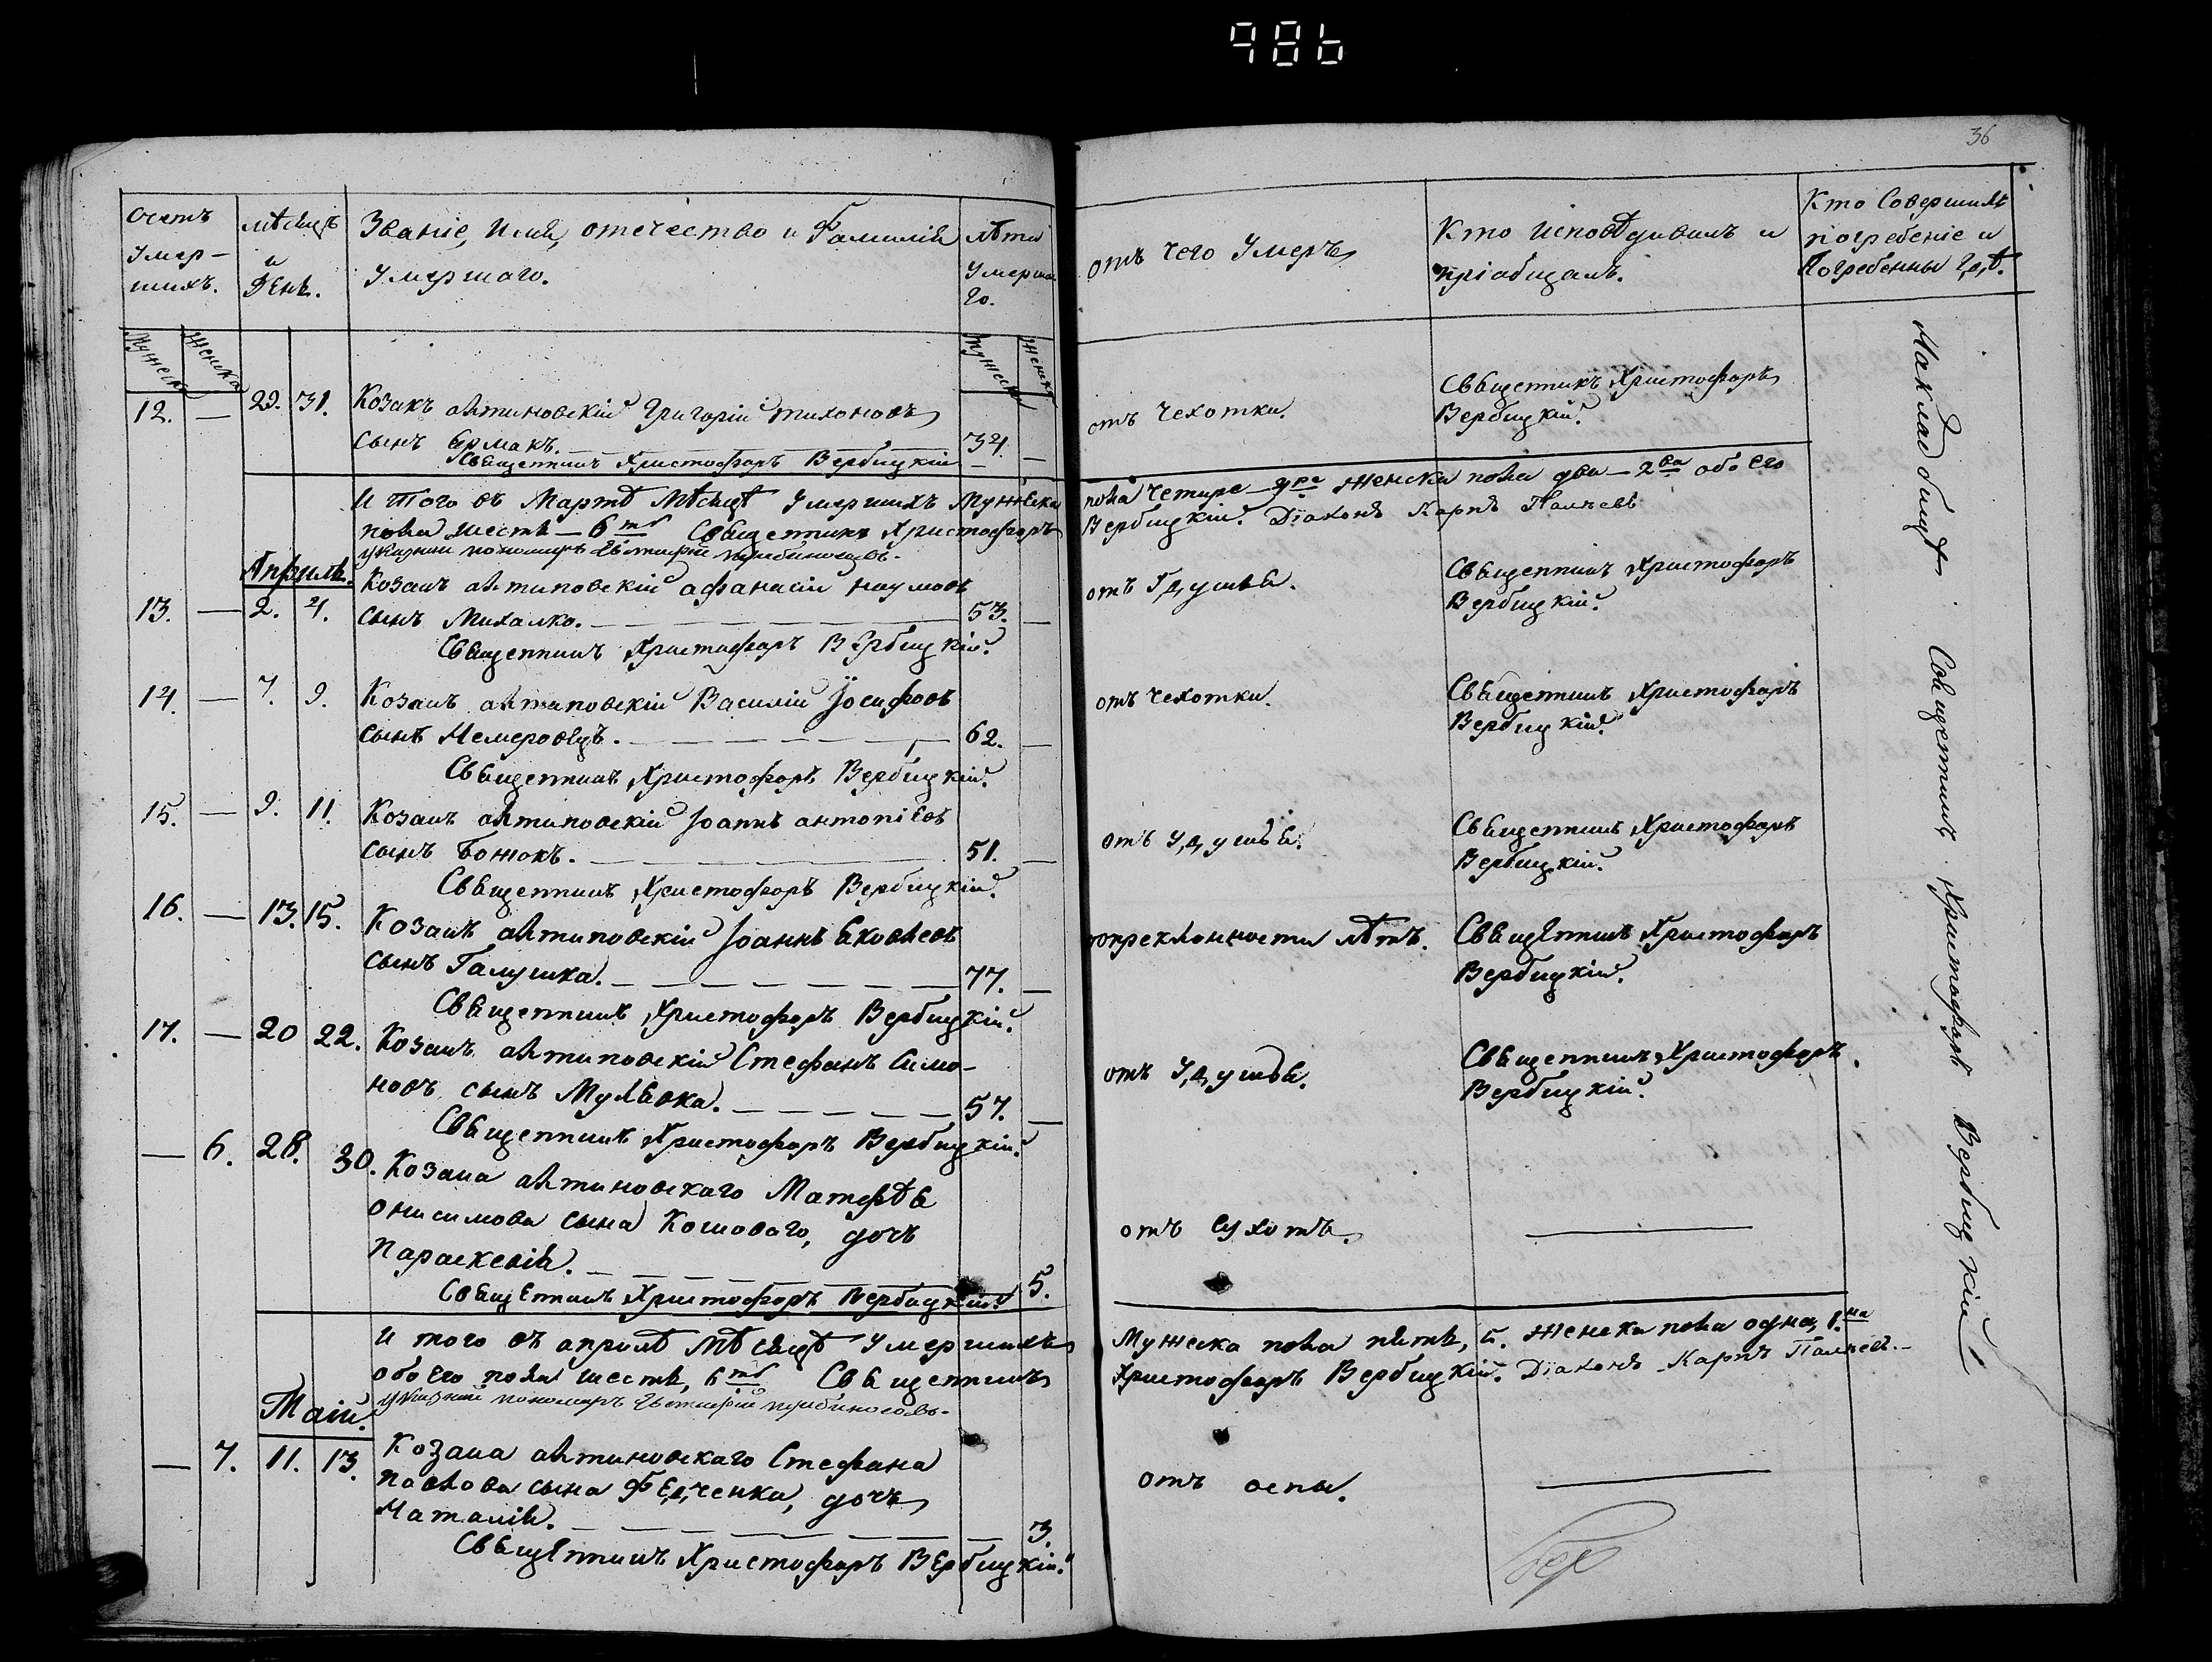 986
36
Счетъ
Умер-
шихъ.
мѣсяцъ
и
День.
Званіе, Имя, отечество и Фамилія
Умершаго.
лѣта
Умерша
го.
отъ чего Умеръ
Кто Исповѣдывалъ и
пріобщалъ.
Кто Совершилъ
погребеніе и
Погребенны гдѣ.
Мужеска
Женска
Мужеск
Женск
12. — 29. 31. Козакъ Григорій тихоновъ
сынъ Ермакъ. 34. —
Священникъ Христофоръ Вербицкій
отъ чехотки.
Священникъ Христофоръ
Вербицкій.
И того въ Мартѣ Мѣсяцѣ Умершихъ Мужеска
пола четыре женска пола два — 2ва обоего
пола шесть — 6ть Священникъ Христофоръ
Вербицкій. Діаконъ Карпъ
указний пономаръ
Апрѣль.
13. — 2. 4. Козакъ афанасій наумовъ
сынъ Михалко. 53. —
Священникъ Христофоръ Вербицкій.
отъ
Священникъ Христофоръ
Вербицкій.
14. — 7. 9. Козакъ Василій Іосифовъ
сынъ Немеровецъ. 62. —
Священникъ Христофоръ Вербицкій.
отъ чехотки.
Священникъ Христофоръ
Вербицкій.
15. — 9. 11. Козакъ Іоаннъ антоніевъ
сынъ Божокъ. 51. —
Священникъ Христофоръ Вербицкій.
отъ удушья.
Священникъ Христофоръ
Вербицкій.
16. — 13. 15. Козакъ Іоаннъ яковлевъ
сынъ Галушка. 77. —
Священникъ Христофоръ Вербицкій.
попреклонности лѣтъ.
Священникъ Христофоръ
Вербицкій.
17. — 20 22. Козакъ Стефанъ Симо-
новъ сынъ Мулявка. 57. —
Священникъ Христофоръ Вербицкій.
отъ Удушья.
Священникъ Христофоръ
Вербицкій.
— 6. 28. 30. Козака Матфѣя
онисимова сына Кошоваго, дочь
параскевія. 5.
Священникъ Христофоръ Вербицкій.
отъ сухотъ.
И того въ априлѣ мѣсяцѣ Умершихъ
Мужеска пола пять, 5. женска пола одна, 1.на
обоего пола шесть, 6ть Священникъ
Христофоръ Вербицкій. Діаконъ Карпъ
указний пономаръ
Маій.
— 7. 11. 13. Козака Стефана
павлова сына Федченка, дочь
Наталія. 3.
Священникъ Христофоръ Вербицкій.
отъ оспы.
На кладбищѣ Священникъ Христофоръ Вербицкій